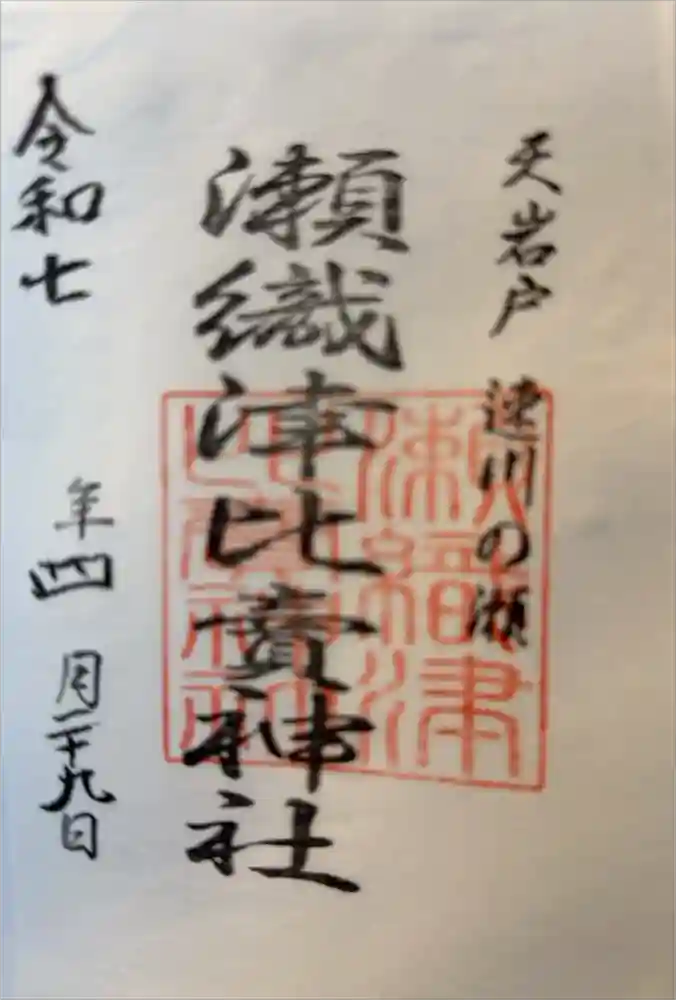 天岩戸 速川の瀬
瀬織津比賣神社
令和七年四月二十九日
瀬織津比賣神社